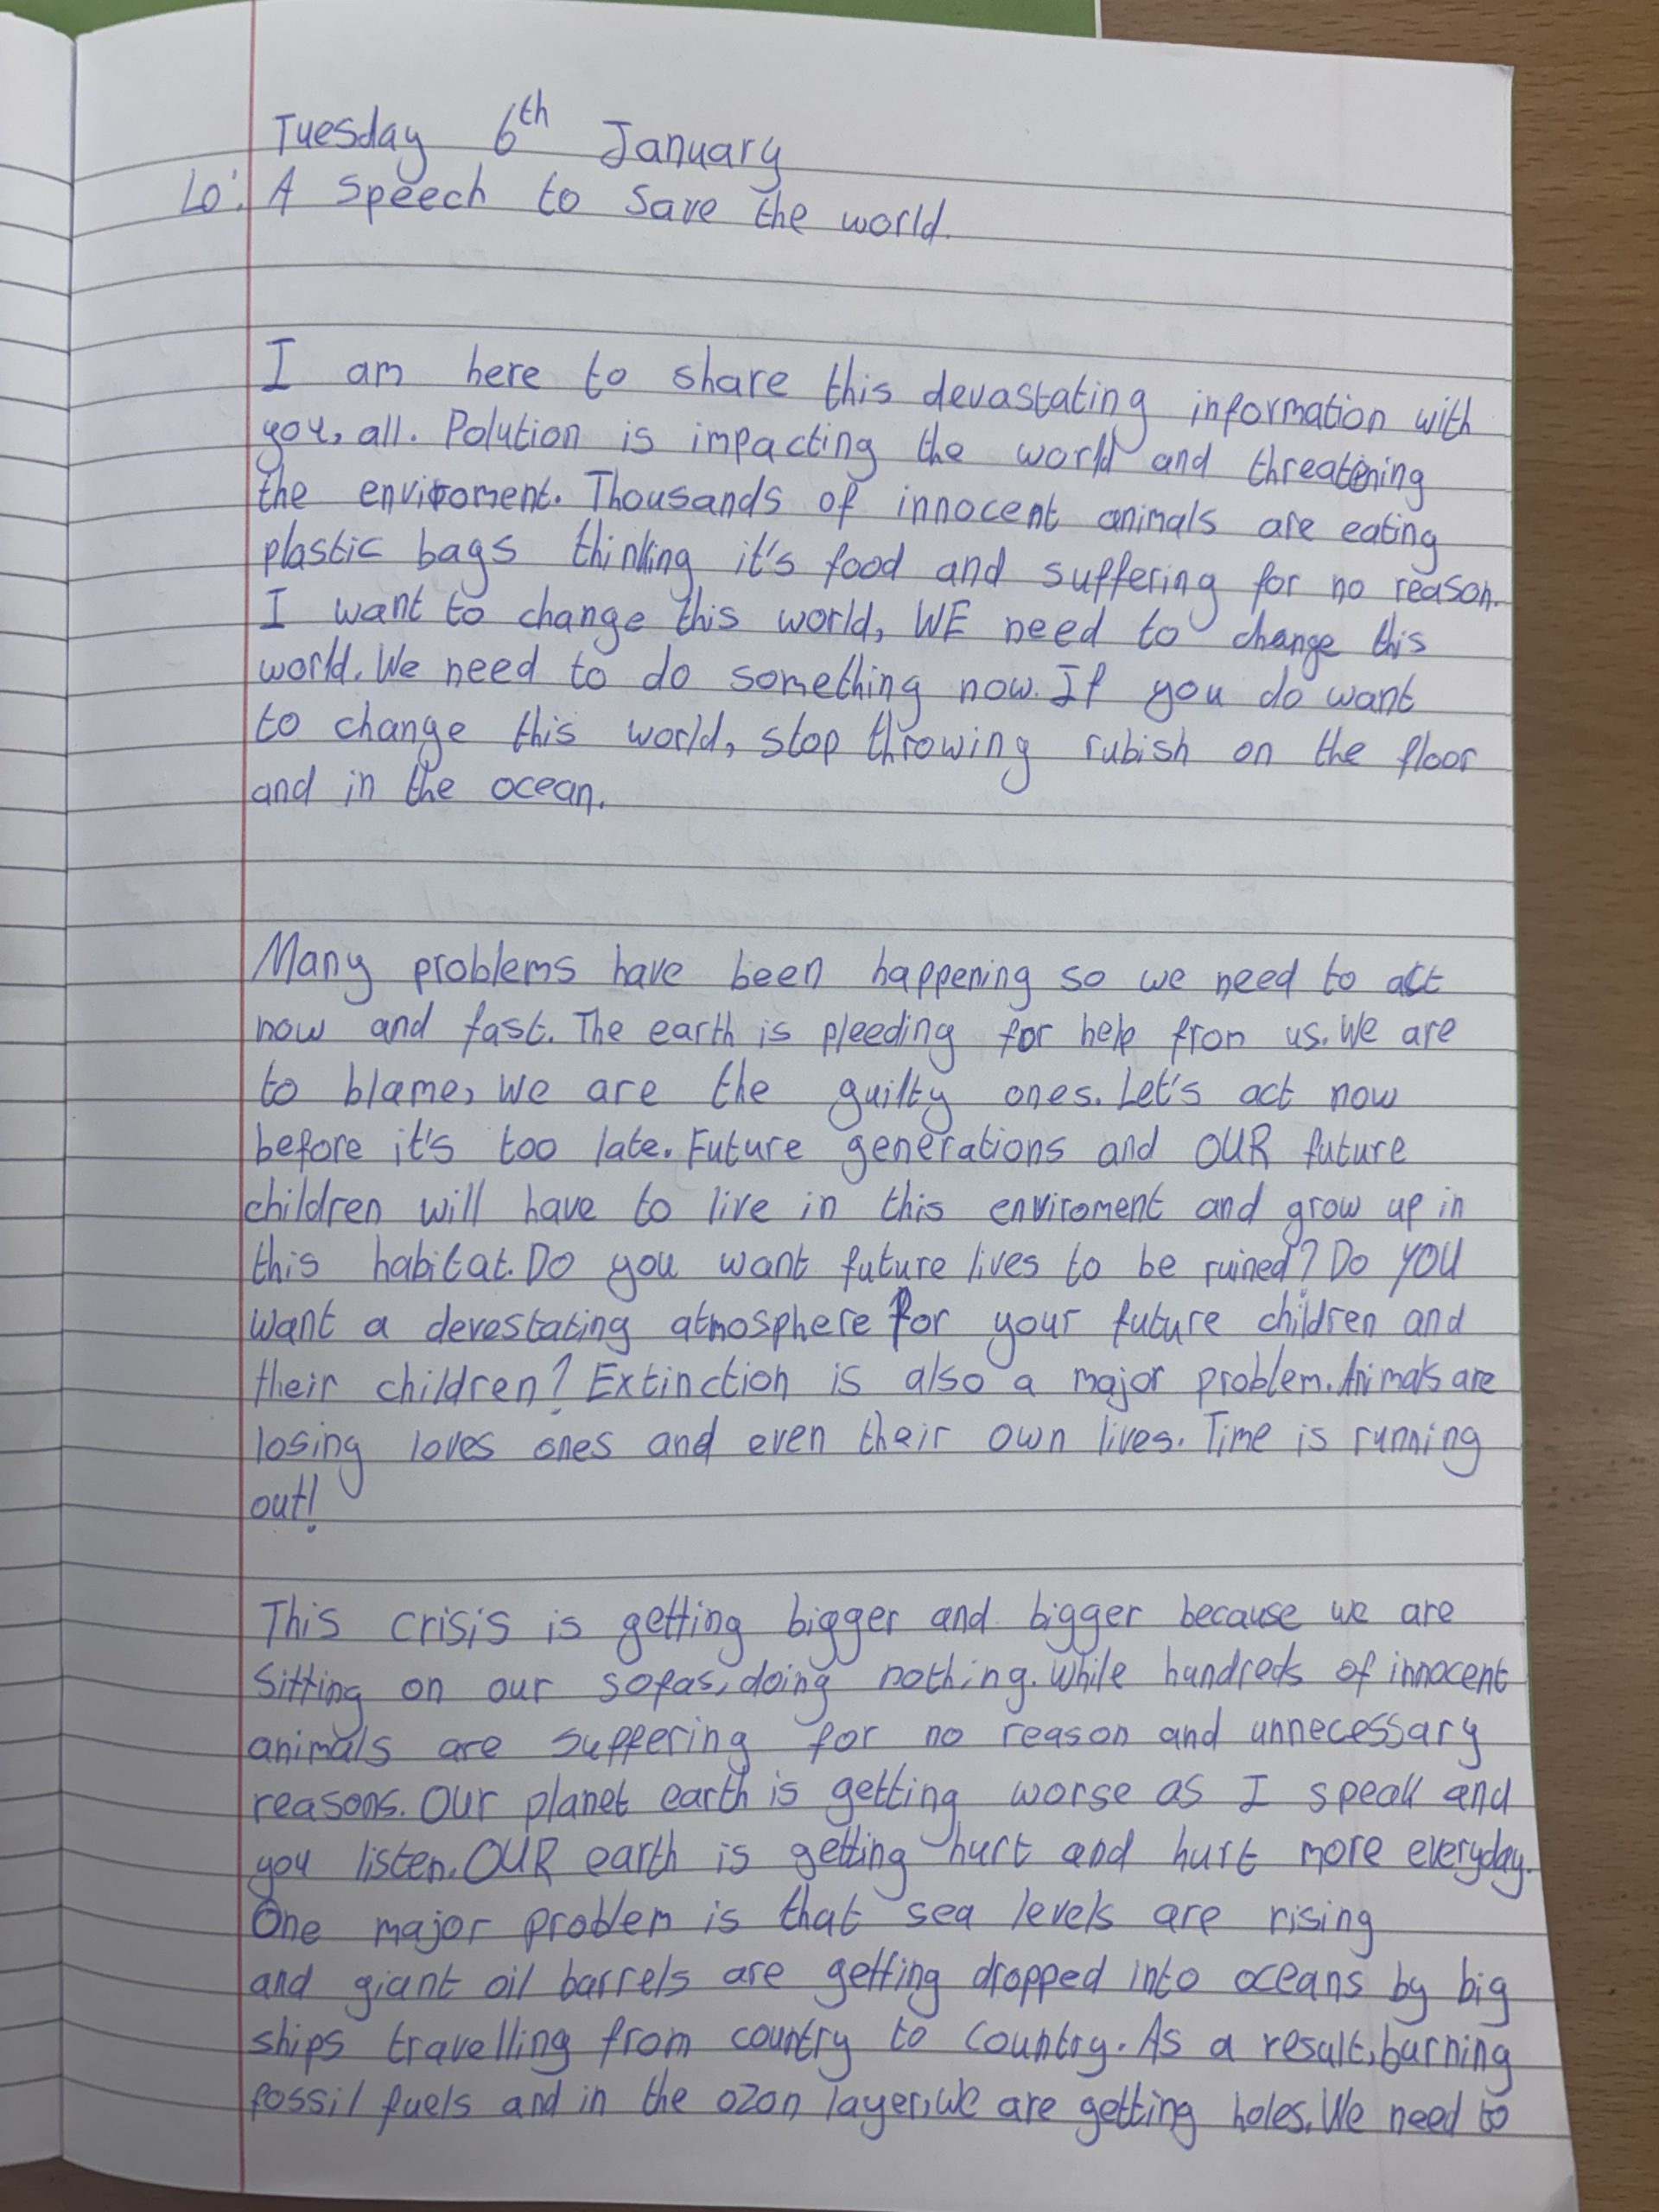 Tuesday 6th January
Lo: A speech to save the world.
I am here to share this devastating information with
you, all. Polution is impacting the world and threatening
the enviroment. Thousands of innocent animals are eating
plastic bags thinking it's food and suffering for no reason.
I want to change this world, WE need to change this
world. We need to do something now. If you do want
to change this world, stop throwing rubish on the floor
and in the ocean.
Many problems have been happening so we need to act
now and fast. The earth is pleeding for help from us. We are
to blame, we are the guilty ones. Let's act now
before it's too late. Future generations and OUR future
children will have to live in this enviroment and grow up in
this habitat. Do you want future lives to be ruined? Do YOU
want a devestating atmosphere for your future children and
their children? Extinction is also a major problem. Animals are
losing loves ones and even their own lives. Time is running
out!
This crisis is getting bigger and bigger because we are
sitting on our sofas, doing nothing. While hundreds of innocent
animals are suffering for no reason and unnecessary
reasons. Our planet earth is getting worse as I speak and
you listen. OUR earth is getting hurt and hurt more everyday.
One major problem is that sea levels are rising
and giant oil barrels are getting dropped into oceans by big
ships travelling from country to country. As a result, burning
fossil fuels and in the ozon layer, we are getting holes. We need to